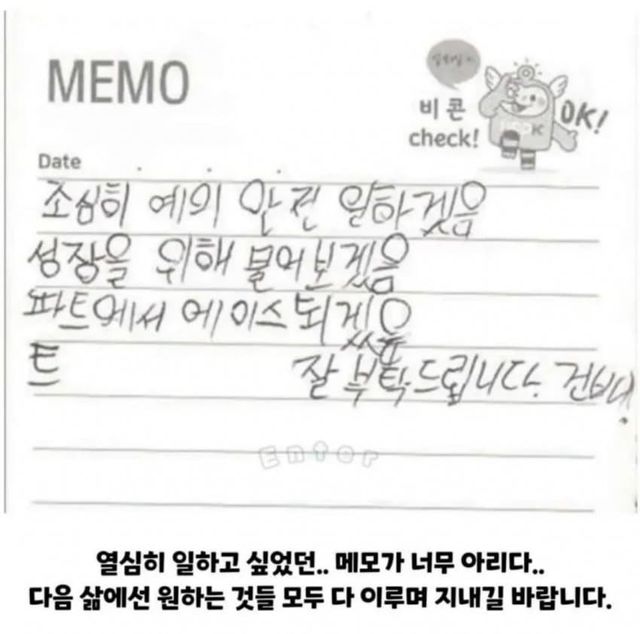 MEMO
비콘
check!
OK!
Date
조심히 예의 안전 일하겠음
성장을 위해 물어보겠음
파트에서 에이스 되겠음
트
잘 부탁드립니다. 건배!
Enter
열심히 일하고 싶었던.. 메모가 너무 아리다..
다음 삶에선 원하는 것들 모두 다 이루며 지내길 바랍니다.